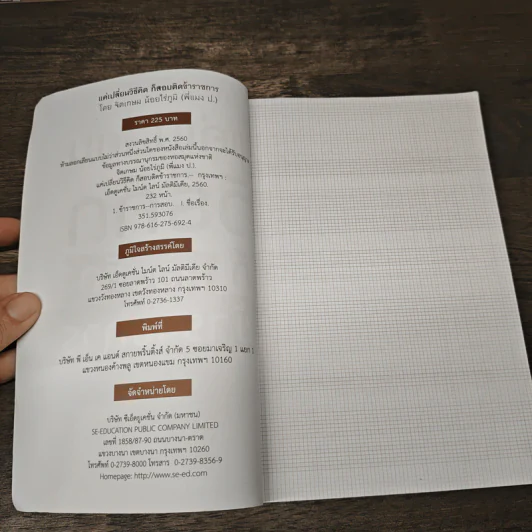 แค่เปลี่ยนวิธีคิด ก็สอบติดข้าราชการ
โดย จิตเกษม น้อยไร่ภูมิ (พี่แมง ป.)
ราคา 225 บาท
สงวนลิขสิทธิ์ พ.ศ. 2560
ห้ามลอกเลียนแบบไม่ว่าส่วนหนึ่งส่วนใดของหนังสือเล่มนี้นอกจากจะได้รับอนุญาต
ข้อมูลทางบรรณานุกรมของหอสมุดแห่งชาติ
จิตเกษม น้อยไร่ภูมิ (พี่แมง ป.).
แค่เปลี่ยนวิธีคิด ก็สอบติดข้าราชการ.-- กรุงเทพฯ :
เอ็ดดูเคชั่น ไมนด์ ไลน์ มัลติมีเดีย, 2560.
232 หน้า.
1. ข้าราชการ--การสอบ. I. ชื่อเรื่อง.
351.593076
ISBN 978-616-275-692-4
ภูมิใจสร้างสรรค์โดย
บริษัท เอ็ดดูเคชั่น ไมนด์ ไลน์ มัลติมีเดีย จำกัด
269/1 ซอยลาดพร้าว 101 ถนนลาดพร้าว
แขวงวังทองหลาง เขตวังทองหลาง กรุงเทพฯ 10310
โทรศัพท์ 0-2736-1337
พิมพ์ที่
บริษัท พี เอ็น เค แอนด์ สกายพริ้นติ้งส์ จำกัด 5 ซอยมาเจริญ 1 แยก
แขวงหนองค้างพลู เขตหนองแขม กรุงเทพฯ 10160
จัดจำหน่ายโดย
บริษัท ซีเอ็ดยูเคชั่น จำกัด (มหาชน)
SE-EDUCATION PUBLIC COMPANY LIMITED
เลขที่ 1858/87-90 ถนนบางนา-ตราด
แขวงบางนา เขตบางนา กรุงเทพฯ 10260
โทรศัพท์ 0-2739-8000 โทรสาร 0-2739-8356-9
Homepage: http://www.se-ed.com